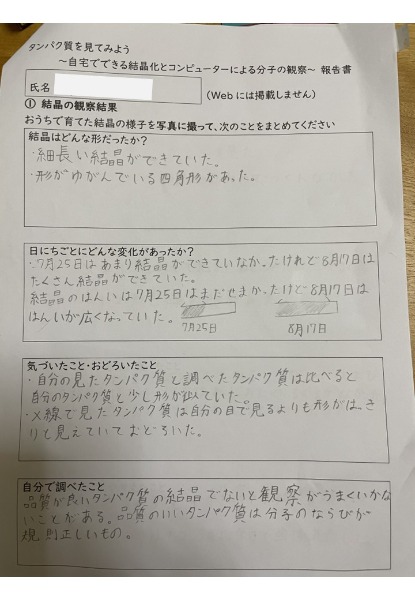 タンパク質を見てみよう
～自宅でできる結晶化とコンピューターによる分子の観察～ 報告書
氏名
(Webには掲載しません)
① 結晶の観察結果
おうちで育てた結晶の様子を写真に撮って、次のことをまとめてください
結晶はどんな形だったか?
・細長い結晶ができていた。
・形がゆがんでいる四角形があった。
日にちごとにどんな変化があったか?
・7月25日はあまり結晶ができていなかったけれど8月17日は
たくさん結晶ができていた。
結晶のはんいは7月25日はまだせまかったけど8月17日は
はんいが広くなっていた。
7月25日
8月17日
気づいたこと・おどろいたこと
・自分の見たタンパク質と調べたタンパク質は比べると
自分のタンパク質と少し形が似ていた。
・X線で見たタンパク質は自分の目で見るよりも形がはっき
りと見えていておどろいた。
自分で調べたこと
品質が良いタンパク質の結晶でないと観察がうまくいかな
いことがある。品質のいいタンパク質は分子のならびが
規則正しいもの。